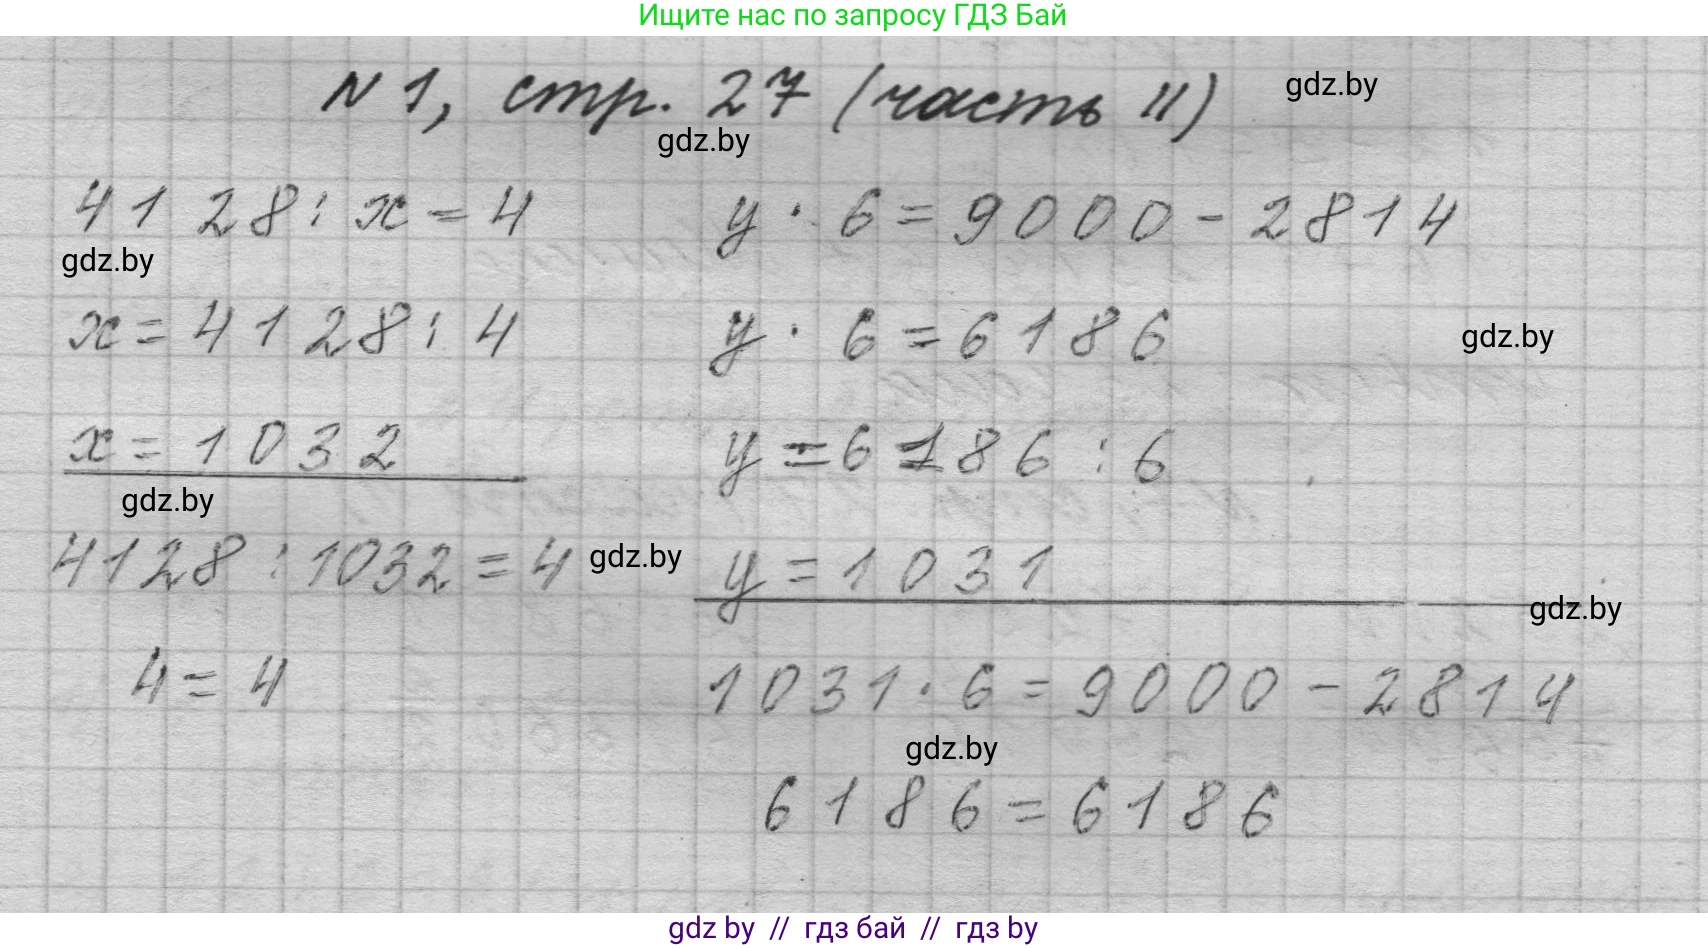 Ищите нас по запросу ГДЗ Бай
N 1, стр. 27 (часть II)
gdz.by
gdz.by
4128 : x = 4
y · 6 = 9000 - 2814
gdz.by
x = 4128 : 4
y · 6 = 6186
gdz.by
x = 1032
y = 6186 : 6
gdz.by
4128 : 1032 = 4
gdz.by
y = 1031
gdz.by
4 = 4
1031 · 6 = 9000 - 2814
gdz.by
6186 = 6186
gdz by // гдз бай // гдз by